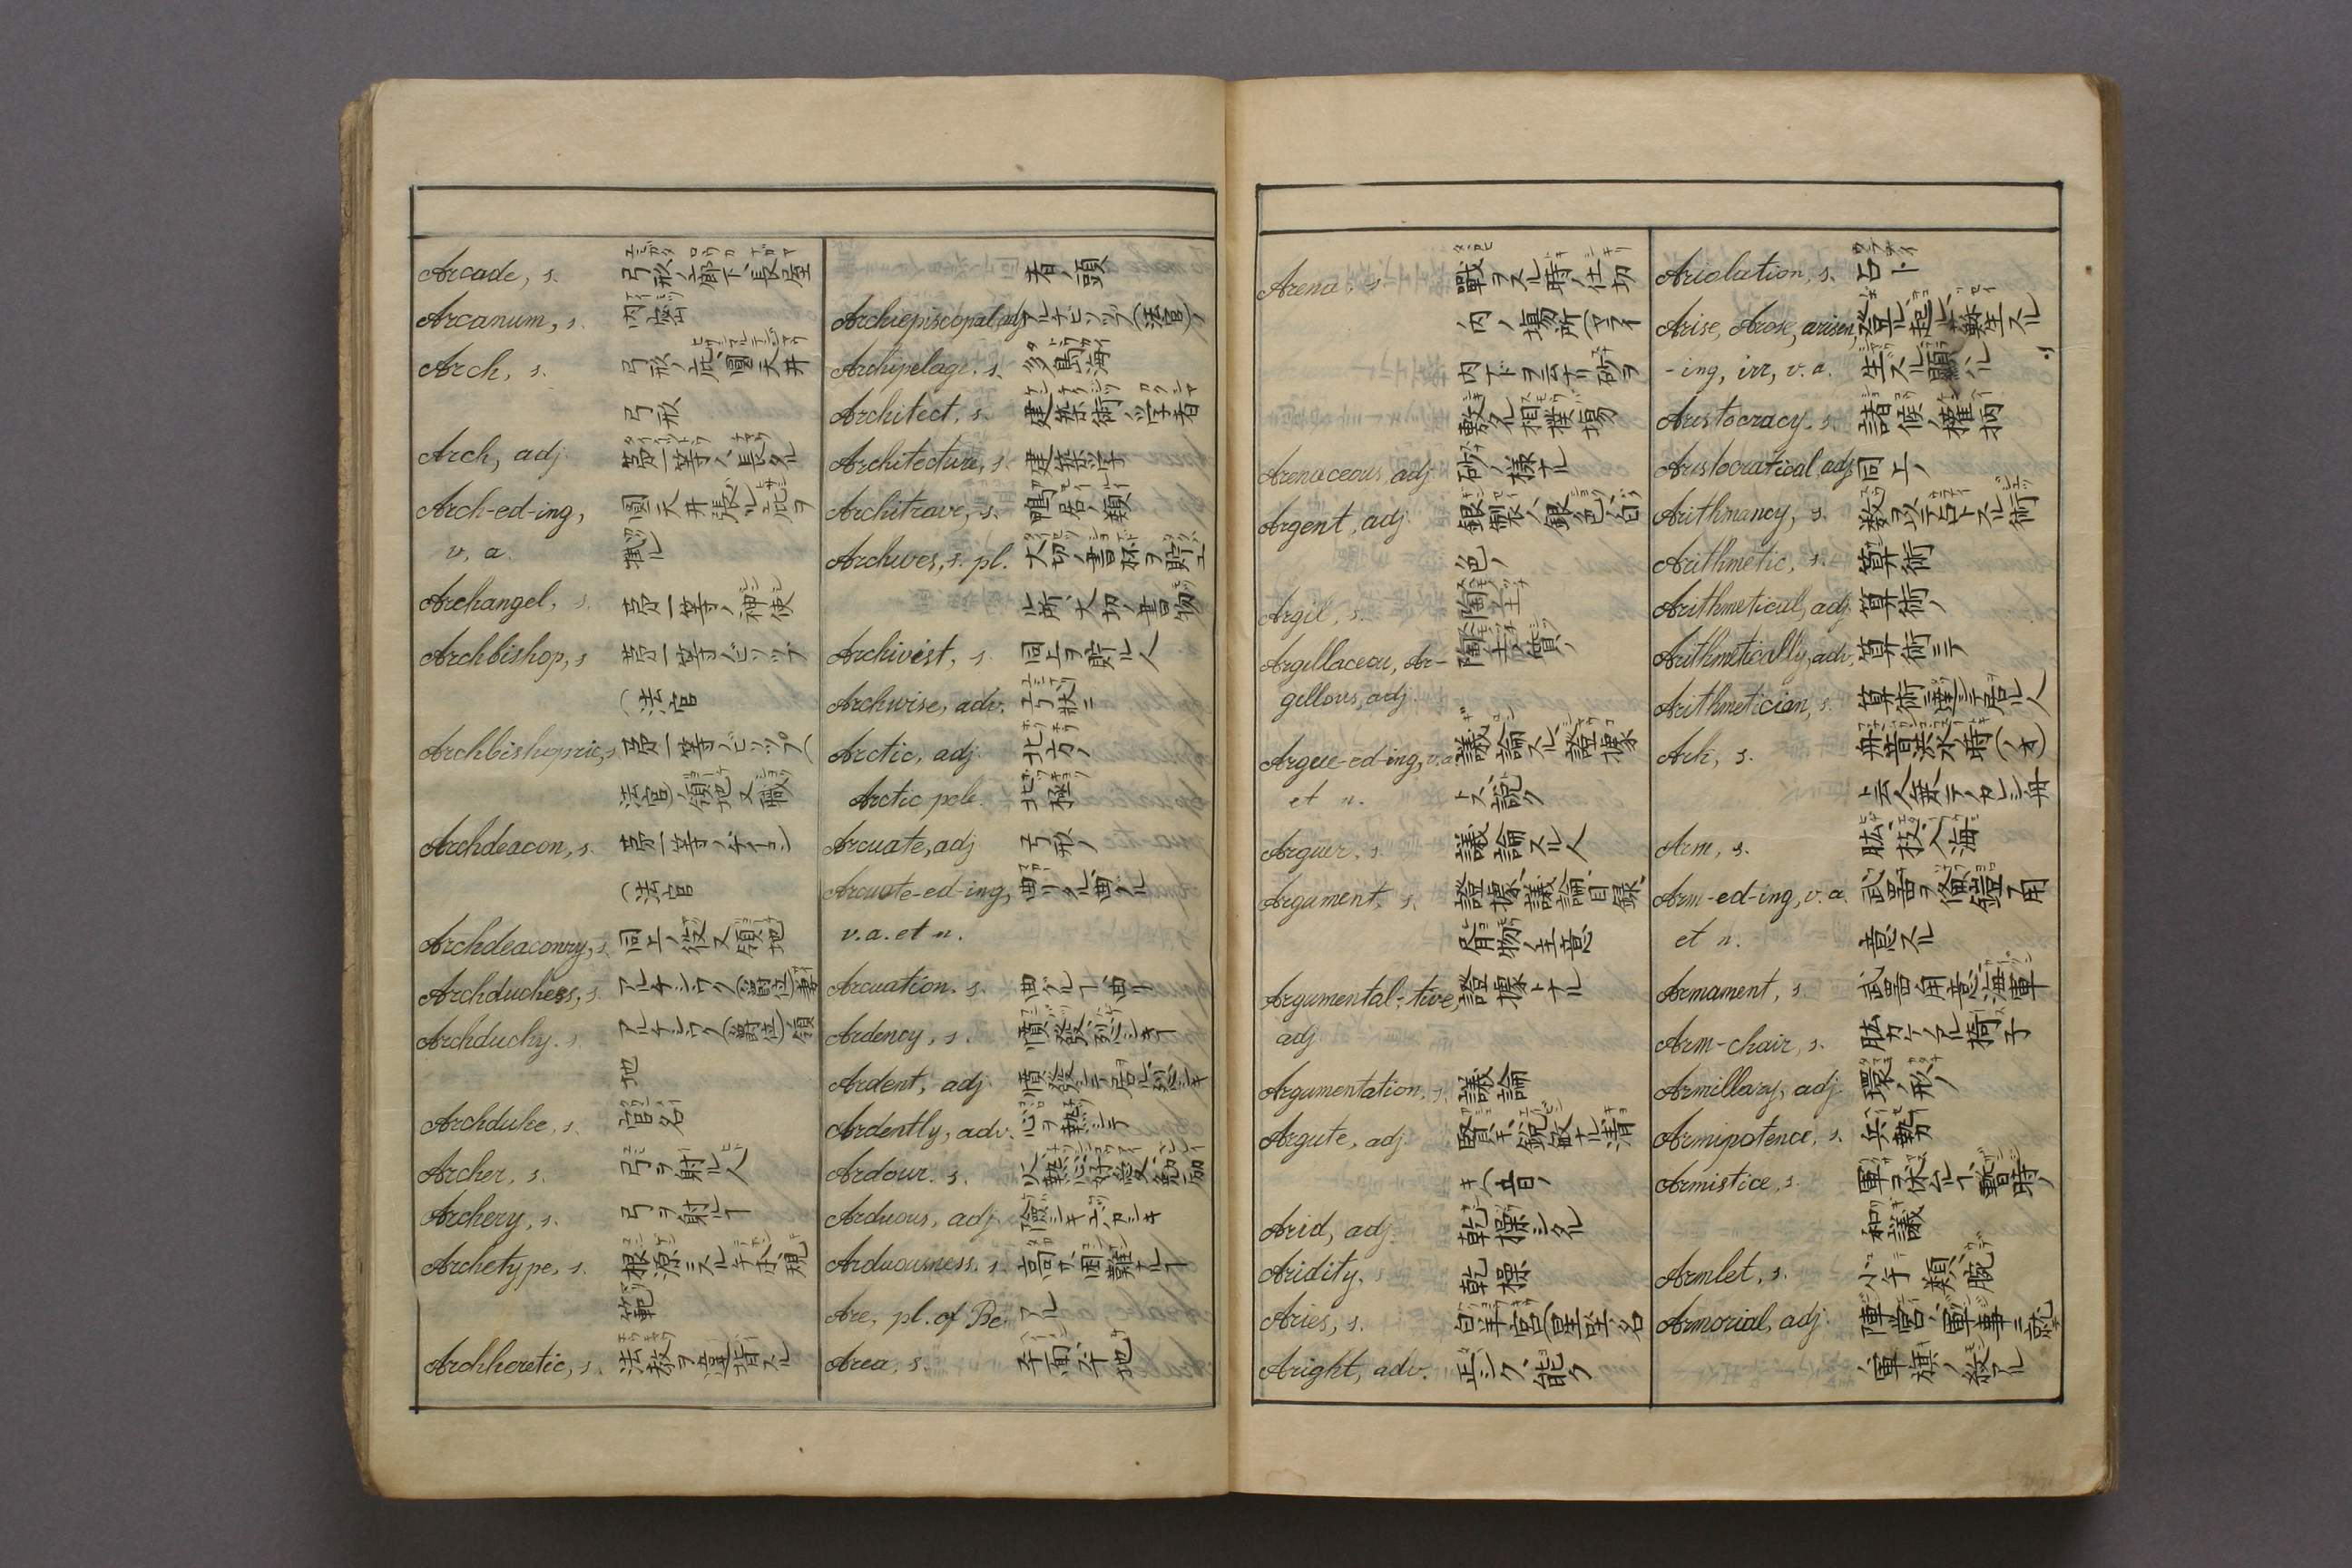 Arcade, s. 弓形ノ廊下、長屋
Arcanum, s. 内密
Arch, s. 弓形ノ庇、圓天井
弓形
Arch, adj. 第一等ノ、長タル
Arch-ed-ing, 圓天井張ル、庇ヲ
v. a.
Archangel, s. 第一等ノ神使
Archbishop, s 第一等ノビソップ
(法官
Archbishopric, s 第一等ノビソップ(
法官)ノ領地又職
Archdeacon, s. 第一等ノデーコン
(法官
Archdeaconry, s. 同上ノ役又領地
Archduchess, s. アルチジウク(爵位)ノ妻
Archduchy. s. アルチジウク(爵位)ノ領
地
Archduke, s. 官名
Archer, s. 弓ヲ射ル人
Archery, s. 弓ヲ射ルヿ
Archetype, s. 根源ニスル手本、規
範
Archheretic, s.
者ノ頭
Archiepiscopal, adj アルチビソップ(法官)ノ
Archipelago, s. 多島海
Architect, s. 建築術ノ学者
Architecture, s. 建築学
Architrave, s. 鴨居ノ類
Archives, s. pl. 大切ノ書杯ヲ貯エ
ル所、大切ノ書物
Archivist, s. 同上ヲ預ル人
Archwise, adv. 弓状ニ
Arctic, adj. 北方ノ
Arctic pole. 北極
Arcuate, adj 弓形ノ
Arcuate-ed-ing,
v. a. et n.
Arcuation. s.
Ardency, s.
Ardent, adj.
Ardently, adv. 心ヲ熱シテ
Ardour. s.
Arduous, adj.
Arduousness. s.
Are, pl. of Be. アル
Area, s. 平面、平地
Arena. s 戰ヲスル時ノ仕切
ノ内ノ場所
敷タル相撲場
Arenaceous, adj 砂ノ様ナル
Argent, adj. 銀製ノ、銀色ノ、白
色ノ
Argil, s. 陶土
Argillaceou, Ar- 陶土質ノ
gellous, adj.
Argue-ed-ing, v.a. 議論スル、證據
et n. トス、説ク
Arguer, s. 議論スル人
Argument, s. 證據、議論、目録、
Argumental-tive, 證據トナル
adj.
Argumentation, s. 議論
Argute, adj. 賢キ、鋭敏ナル、清
キ(音ノ
Arid, adj. 乾燥シタル
Aridity, s 乾燥
Aries, s. 白羊宮(星座ノ名
Aright, adv. 正シク、能ク
Ariolation, s. 占卜
Arise, Arose, arisen,
-ing, irr, v. a. 生スル、顯ハル
Aristocracy. s. 諸侯ノ權柄
Aristocratical, adj 同上ノ
Arithmancy, s. 数ヲ以テ占トスル術
Arithmetic, s. 算術
Arithmetical, adj. 算術ノ
Arithmetically, adv, 算術ニテ
Arithmetician, s. 算術ニ達シテ居ル人
Ark, s.
Arm, s. 肱、枝、入海
Arm-ed-ing, v. a. 武器ヲ備ル、鎧ヲ用
et n. 意スル
Armament, s. 武器ノ用意、海軍
Arm-chair, s.
Armillary, adj. 環ノ形ノ
Armipotence, s. 兵勢
Armistice, s. 軍ヲ休ムルヿ、暫時ノ
和議
Armlet, s.
Armorial, adj. 陣営ノ、軍事ニ就テ
ノ、軍旗ノ紋アル